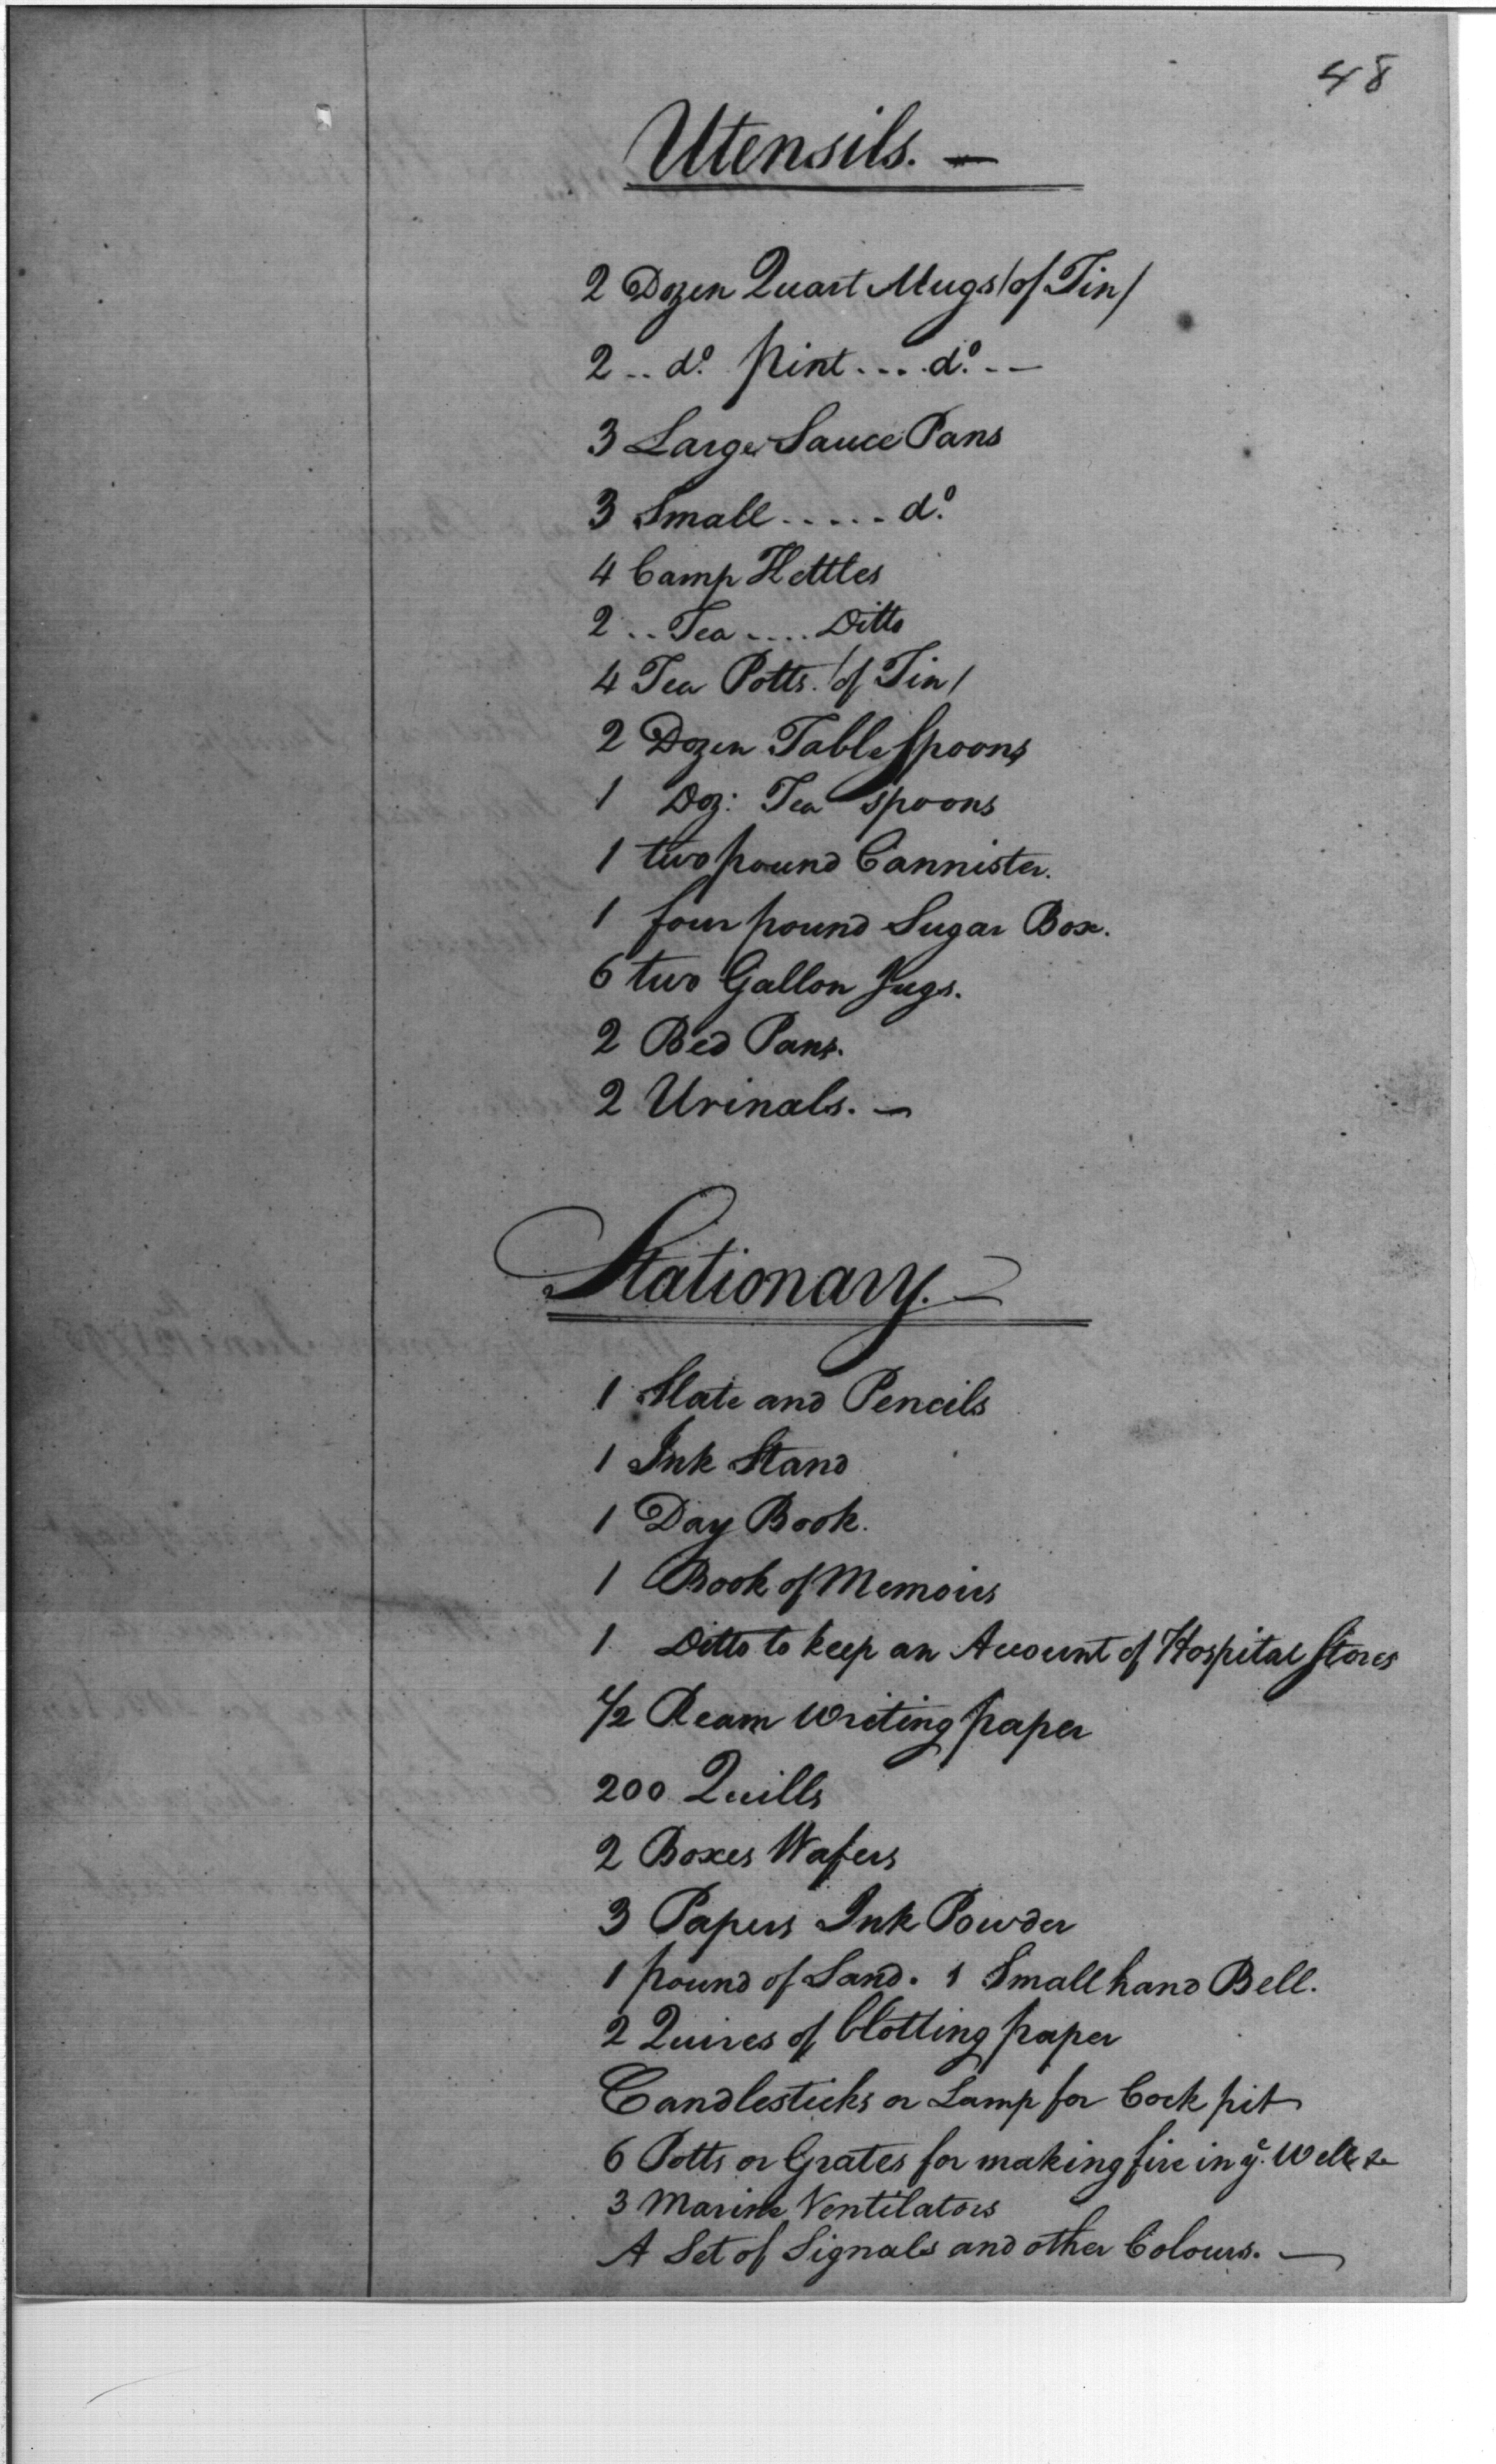 48
Utensils. —
2 Dozen Quart Mugs (of Tin)
2 .. do. pint .... do. --
3 Large Sauce Pans
3 Small ..... do.
4 Camp Kettles
2 .. Tea .... Ditto
4 Tea Potts. (of Tin)
2 Dozen Table Spoons
1 Doz: Tea spoons
1 two pound Cannister.
1 four pound Sugar Box.
6 two Gallon Jugs.
2 Bed Pans.
2 Urinals. —
Stationary. —
1 Slate and Pencils
1 Ink Stand
1 Day Book.
1 Book of Memoirs
1 Ditto to keep an Account of Hospital Stores
1/2 Ream writing paper
200 Quills
2 Boxes Wafers
3 Papers Ink Powder
1 pound of Sand. 1 Small hand Bell.
2 Quires of blotting paper
Candlesticks or Lamp for Cock pit
6 Potts or Grates for making fire in ye. Well &c
3 Marine Ventilators
A Set of Signals and other Colours. —